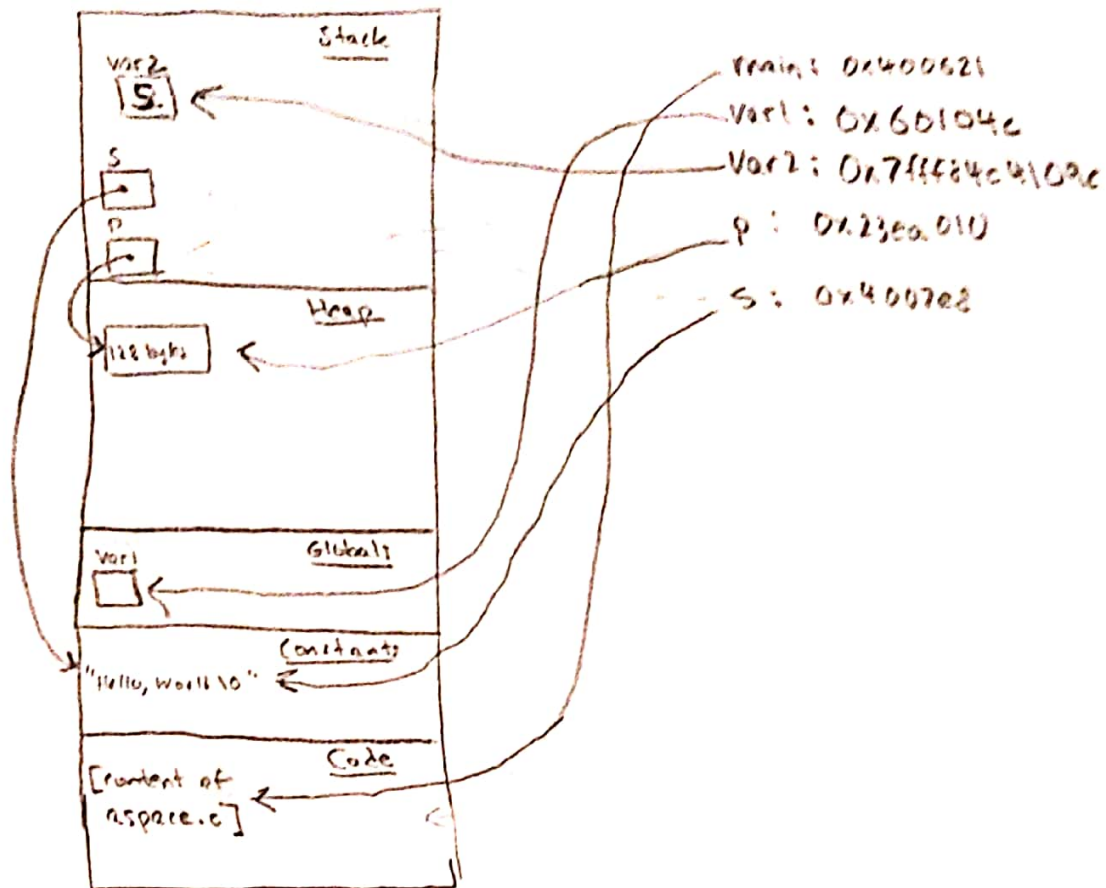 Stack
var2
5
S
P
Heap
128 bytes
Globals
var1
Constants
"Hello, World\0"
Code
[content of
aspace.c]
main: 0x400621
var1: 0x60104c
var2:
p: 0x23ea010
s: 0x4007e8